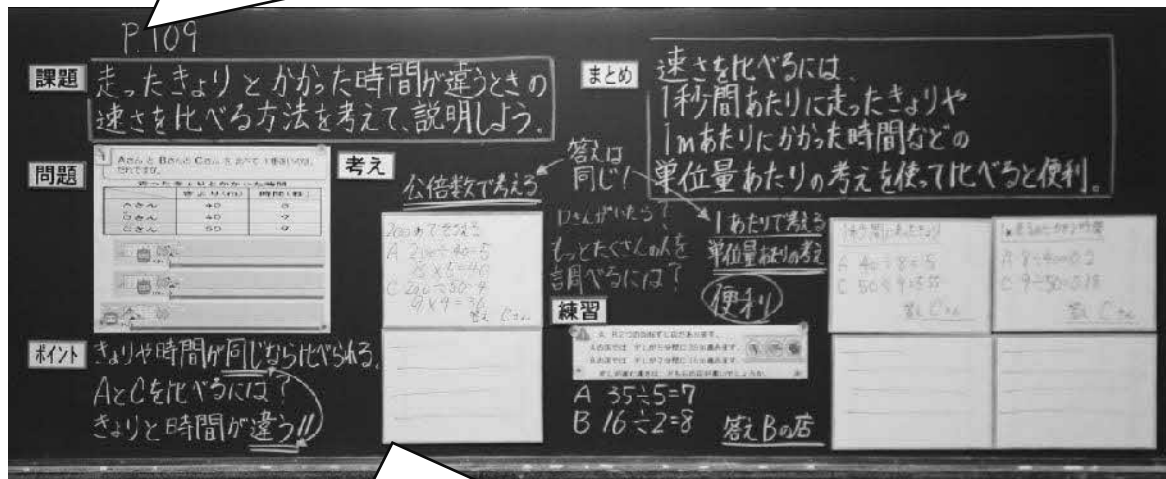 P.109
課題
走ったきょりとかかった時間が違うときの
速さを比べる方法を考えて、説明しよう。
問題
AさんとBさんとCさん
走ったきょりとかかった時間
きょり(m) 時間(秒)
Aさん 40 8
Bさん 40 9
Cさん 50 9
ポイント
きょりや時間が同じなら比べられる。
AとCを比べるには?
きょりと時間が違う!!
考え
公倍数で考える
A 200÷40=5
C 200÷50=4
9×4=36
答え Cさん
答えは
同じ!
Dさんがいたら?
もっとたくさんの人を
調べるには?
1あたりで考える
単位量あたりの考え
便利
練習
A 35÷5=7
B 16÷2=8
答え Bの店
まとめ
速さを比べるには、
1秒間あたりに走ったきょりや
1mあたりにかかった時間などの
単位量あたりの考えを使って比べると便利。
1秒間に走ったきょり
A 40÷8=5
C 50÷9=5.55
答え Cさん
A 8÷40=0.2
C 9÷50=0.18
答え Cさん